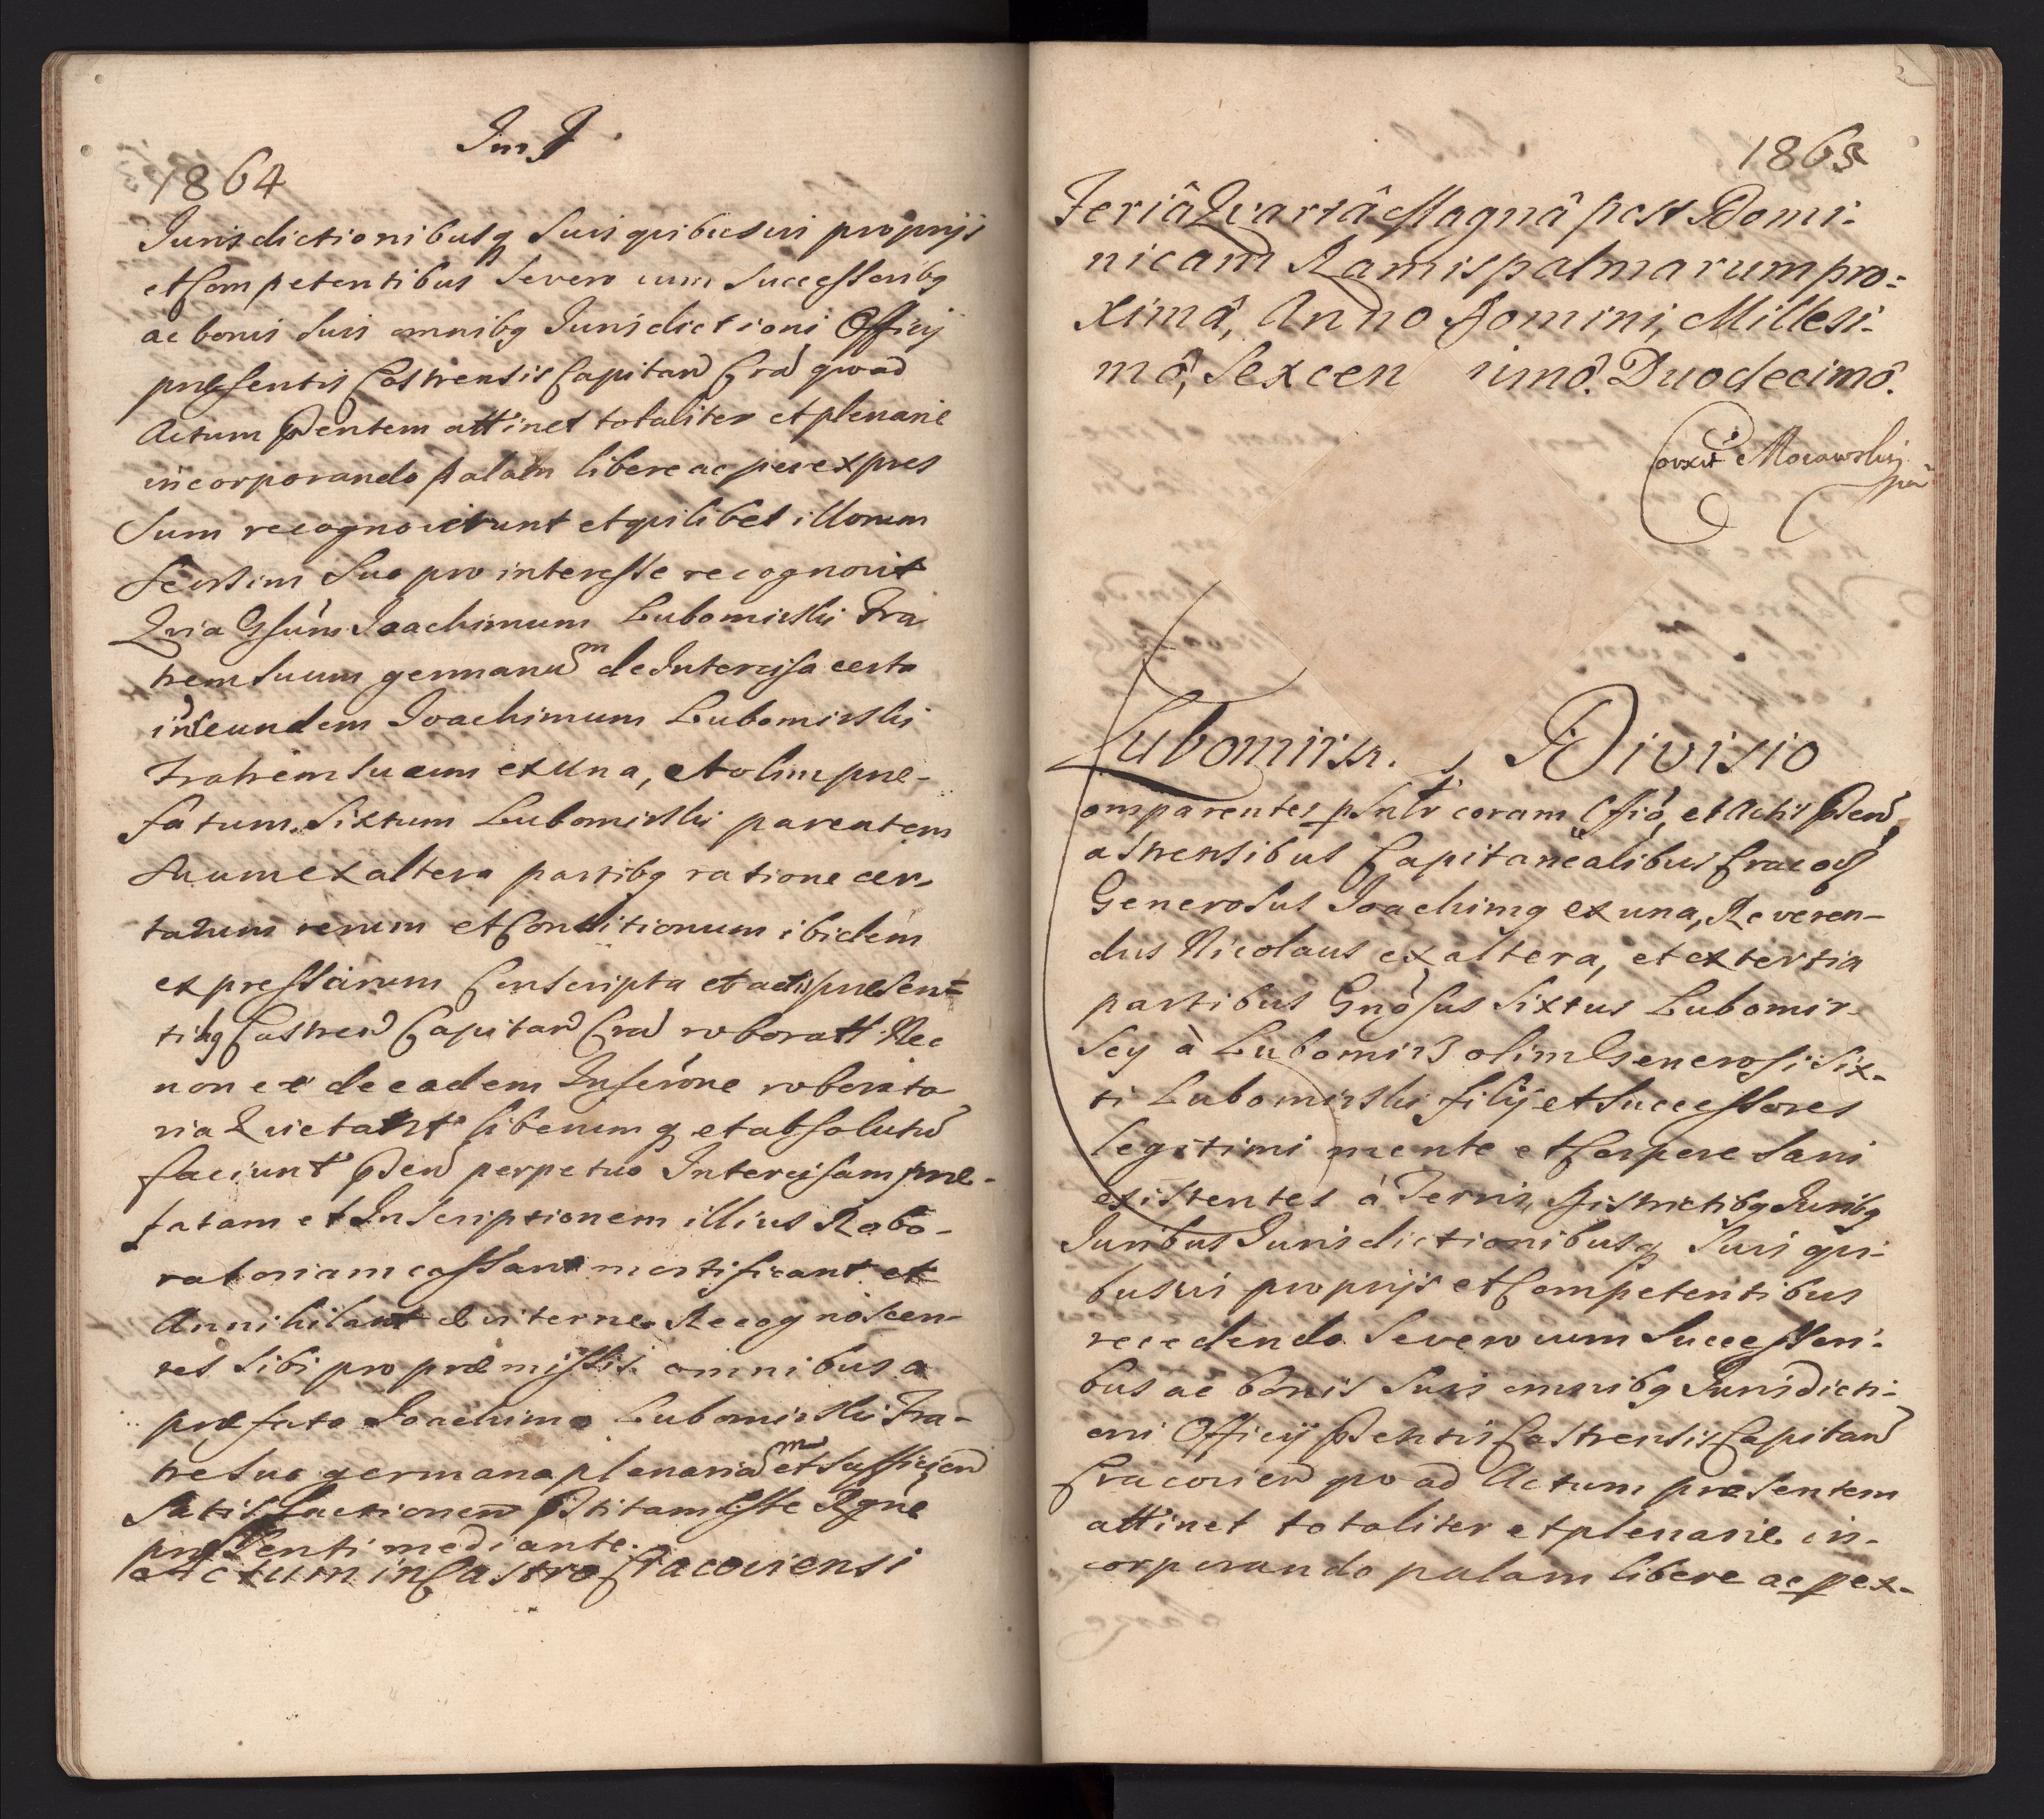 1864
Jurisdictionibusq suis quibusvis proprijs
et Competentibus Severo cum Successoribq
ac bonis suis omnibq Jurisdictioni Officij
præsentis Castrensis Capitan Cra quoad
Actum pntem attinet totaliter et plenarie
incorporando palam libere ac per expres
sum recognoverunt et quilibet illorum
seorsim suo pro interesse recognovit
Quia Gsum Joachimum Lubomirski Fra
trem suum germanum de Intercisa certa
inter eundem Joachimum Lubomirski
Fratrem suum ex una, et olim præ-
fatum Sixtum Lubomirski parentem
suum ex altera partibq ratione cer-
tarum rerum et Conditionum ibidem
expressarum Conscripta et actis præsen=
tibq Castren Capitan Cra roborata Nec
non et de eadem Inscrône roborato
ria Quietant liberumq et absolutum
faciunt perpetuo Intercisam præ-
fatam et Inscriptionem illius Robo-
ratoriam cassant mortificant et
Annihilant eviterne Recognoscen-
tes sibi pro præmissis omnibus a
præfato Joachimo Lubomirski Fra-
tre suo germano plenariam et sufficien
Satisfactionem pstitam esse Rgne
præsenti mediante.
Actum in Castro Cracoviensi
1865
Feriâ Quartâ Magnâ post Domi-
nicam Ramis palmarum pro-
ximâ, Anno Domini, Millesi-
mô, Sexcen imô. Duodecimô.
Corxit Morawski
Lubomirsc. Divisio
omparentes psnlr coram Offiô, et Actis
astrensibus Capitanealibus Cracov
Generosus Joachimq ex una, Reveren-
dus Nicolaus ex altera, et ex tertia
partibus Gnôsus Sixtus Lubomir-
scy à Lubomirz olim Generosi Six-
ti Lubomirski filij et Successores
legitimi mente et Corpore sani
existentes à Terris, Districtibq Juribq
Juribus Jurisdictionibusq suis qui-
busvis proprijs et Competentibus
recedendo Severo cum Successori-
bus ac bonis suis omnibq Jurisdicti-
oni Officij psentis Castrensis Capitan
Cracovien quoad Actum præsentem
attinet totaliter et plenarie in-
corporando palam libere ac p ex-